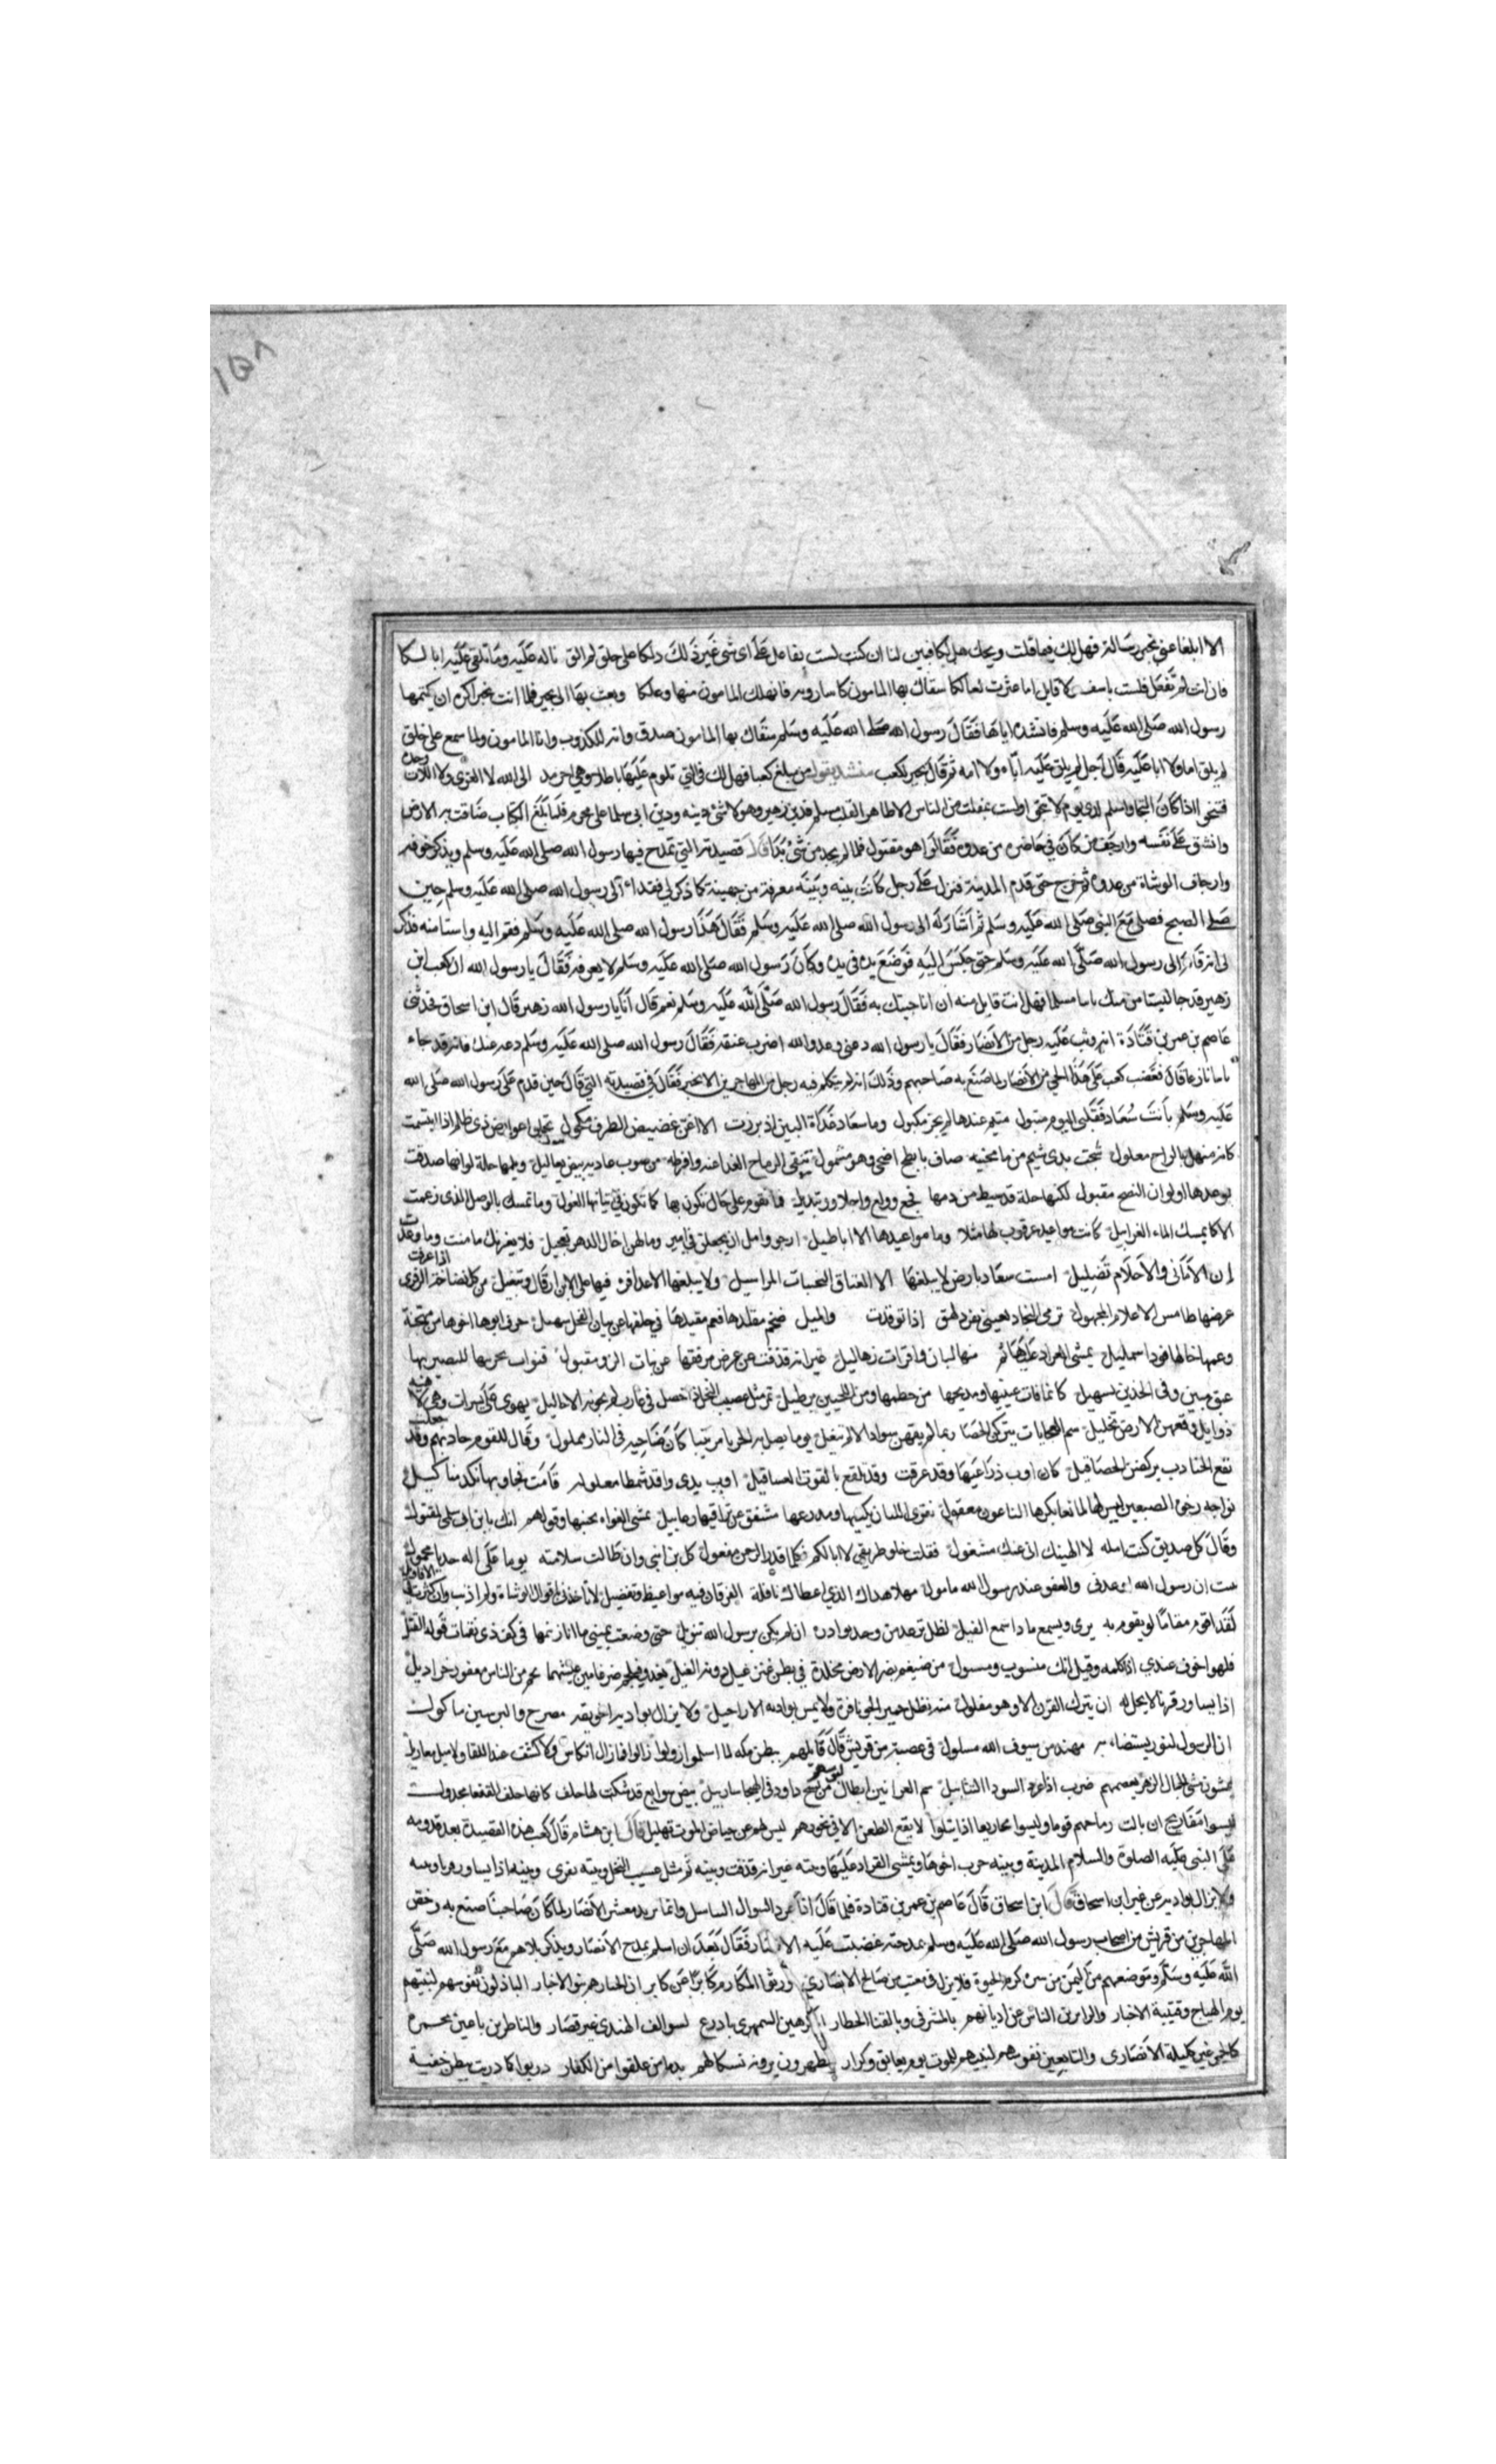 ١٥٨
الا ابلغا عني بجيرا رسالة فهل لك فيما قلت ويحك هل لكا فبين لنا ان كنت لست بفاعل على اى شئ غير ذلك دلكا على خلق لم الق عليه وما تلقى عليه ابا لكا
فان انت لم تفعل فلست باسف ولا قايل اما عثرت لعا لكا سقاك بها المامون كاسا روية فانهلك المامون منها وعلكا وبعث بها الى بجير فلما اتت بجير اكره ان يكتمها
رسول الله صلى الله عليه وسلم فانشده اياها فقال رسول الله صلى الله عليه وسلم سقاك بها المامون صدق وانه لكذوب وانا المامون ولما سمع على خلق
لم يلق اما ولا ابا عليه قال اجل لم يلق عليه اباه ولا امه ثم قال بجير لكعب من مبلغ كعبا فهل لك في التي تلوم عليها باطلا وهي احزم الى الله لا العزى ولا اللات وحده
فتنجى اذا كان النجا وتسلم لدى يوم لا تنجى وليست بمفلت من الناس الا طاهر القلب مسلم فدين زهير وهو لا شئ دينه ودين ابى سلما على محرم فلما بلغ الكتاب ضاقت به الارض
وانشق على نفسه وارجف من كان في حاضره من عدوه فقالوا هو مقتول فلما لم يجد من شئ بدا قال قصيدته التي تمدح فيها رسول الله صلى الله عليه وسلم ويذكر خوفه
وارجاف الوشاة من عدوه ثم خرج حتى قدم المدينة فنزل على رجل كانت بينه وبينه معرفة من جهينة كما ذكر لي فغداء الى رسول الله صلى الله عليه وسلم حين
صلى الصبح فصلى مع النبي صلى الله عليه وسلم ثم اشار له الى رسول الله صلى الله عليه وسلم فقال هذا رسول الله صلى الله عليه وسلم فقم اليه واستامنه فذكر
لى انه قام الى رسول الله صلى الله عليه وسلم حتى جلس اليه فوضع يده في يده وكان رسول الله صلى الله عليه وسلم لا يعرفه فقال يا رسول الله ان كعب ابن
زهير قد جا ليستامن منك تابيا مسلما فهل انت قابل منه ان انا جيتك به فقال رسول الله صلى الله عليه وسلم نعم قال انا يا رسول الله زهير قال ابن اسحاق فحدثنى
عاصم بن عمر بن قتادة انه وثب عليه رجل من الانصار فقال يا رسول الله دعنى وعدو الله اضرب عنقه فقال رسول الله صلى الله عليه وسلم دعه عنك فانه قد جاء
تايبا نازعا قال فغضب كعب على هذا الحي من الانصار لما صنع به صاحبهم وذلك انه لم يتكلم فيه رجل من المهاجرين الا بخير فقال في قصيدته التي قال حين قدم على رسول الله صلى الله
عليه وسلم بانت سعاد فقلبي اليوم متبول متيم عندها لم يجز مكبول وما سعاد غداة البين اذ برزت الا اغن غضيض الطرف مكحول تجلوا عوارض ذي ظلم اذا ابتسمت
كانه منهل بالراح معلول شجت بذى شيم من ما محنيه صاف بابطح اضحى وهو مشمول تنفى الرياح القذا عنه وافرطه من صوب غاديه بيض يعاليل ويلمها خلة لو انها صدقت
بوعدها او لو ان النصح مقبول لكنها خلة قد سيط من دمها فجع وولع واخلاف وتبديل فما تقوم على حال تكون بها كما تكون في اثيابها الغول وما تمسك بالوصل الذى زعمت
الا كما يمسك الماء الغرابيل كانت مواعيد عرقوب لها مثلا وما مواعيدها الا الاباطيل ارجو وامل ان يعجلن في امر وما لهن اخال الدهر تعجيل فلا يغرنك ما منت وما وعدت
ان الاماني والاحلام تضليل امست سعاد بارض لا يبلغها الا العتاق النجيبات المراسيل ولا يبلغها الا عذافرة فيها على الاين ارقال وتبغيل من كل نضاخة الذفرى اذا عرقت
عرضها طامس الاعلام المجهول ترمى النجاد بعيني مفرد لهق اذا توقدت والميل ضخم مقلدها فعم مقيدها في خلقها عن بنات الفحل تفضيل حرف ابوها اخوها من مهجنة
وعمها خالها قودا شمليل يمشى القراد عليها ثم منها لبان واقراب زهاليل عيرانه قذفت عن عرض مرفقها عن بنات الزور مفتول قنواء في حرتيها للبصير بها
عتق مبين وفي الخدين تسهيل كانما فات عينيها ومذبحها من خطمها ومن اللحيين برطيل تمر مثل عسيب النخل ذا خصل في غارب لم تخونه الاحاليل تهوى على يسرات وهي لاهية
ذوابل وقعهن الارض تحليل سم العجايات يتركن الحصا زيما لم يقهن سواد الاكم تنعيل يوما يصل به الحربا مرتبيا كان ضاحيه في النار مملول وقال للقوم حاديهم وقد جعلت
بقع الجنادب يركضن الحصا قيل كان اوب ذراعيها وقد عرقت وقد تلفع بالقور العساقيل اوب يدي فاقد شمطا معلوله قامت تجاوبها نكد مثاكيل
نواحه رخوة الضبعين ليس لها لما نعا بكرها الناعون معقول تفرى اللبان بكفيها ومدرعها مشقق عن تراقيها رعابيل يمشى الغواه بجنبيها وقولهم انك يا ابن ابي سلمى لمقتول
وقال كل صديق كنت امله لا الهينك انى عنك مشغول فقلت خلوا طريقي لا ابا لكم فكلما قدر الرحمن مفعول كل بن انثى وان طالت سلامته يوما على اله حدبا محمول
نبيت ان رسول الله اوعدني والعفو عند رسول الله مامول مهلا هداك الذي اعطاك نافلة الفرقان فيه مواعيظ وتفصيل لا تاخذنى باقوال الوشاة ولم اذنب وان كثرت في الاقاويل
لقد اقوم مقاما لو يقوم به يرى ويسمع ما دا سمع الفيل لظل ترعد من وجد بوادره ان لم يكن برسول الله تنويل حتى وضعت يمينى ما انازعها في كف ذي نقمات قوله القيل
فلهو اخوف عندي اذ اكلمه وقيل انك منسوب ومسول من ضيغم بضراء الارض مخدره في بطن عثر غيل دونه الغيل يغدو فيلحم ضرغامين عيشهما لحم من الناس معفور خراديل
اذا يساور قرنا لا يحل له ان يترك القرن الا وهو مفلول منه تظل حمير الجو نافرة ولا يمشى بواديه الاراجيل ولا يزال بواديه اخو ثقه مضرج والبر سين ماكول
ان الرسول لنور يستضاء به مهند من سيوف الله مسلول في عصبة من قريش قال قايلهم ببطن مكه لما اسلموا زولوا زالوا فما زال انكاس ولا كشف عند اللقا ولا ميل معازيل
يمشون مشى الجمال الزهر يعصمهم ضرب اذا عرد السود التنابيل شم العرانين ابطال لبوسهم من نسج داود في الهيجا سرابيل بيض سوابغ قد شكت لها حلق كانها حلق القفعا مجدول
ليسوا مفاريح ان نالت رماحهم قوما وليسوا مجازيعا اذا نيلوا لا يقع الطعن الا في نحورهم ليس لهم عن حياض الموت تهليل قال ابن هشام قال كعب هذه القصيدة بعد قدومه
على النبي عليه الصلوة والسلام المدينة وبيته حرب اخوها ويمشى القراد عليها وبيته عيرانه قذفت وبيته تمر مثل عسيب النخل وبيته تفرى وبيته اذا يساور وبيته
ولا يزال بواديه عن غير ابن اسحاق قال ابن اسحاق قال عاصم بن عمر بن قتادة فلما قال اذا عرد السود التنابيل وانما يريد معشر الانصار لما كان صاحبنا صنع به وخص
المهاجرين من قريش من اصحاب رسول الله صلى الله عليه وسلم بمدحته غضبت عليه الانصار فقال بعد ان اسلم يمدح الانصار ويذكر بلاهم مع رسول الله صلى
الله عليه وسلم وموضعهم من اليمن من سره كرم الحيوة فلا يزل في مقنب من صالح الانصاري ورثوا المكارم كابرا عن كابر ان الخيار هم بنو الاخيار الباذلون نفوسهم لنبيهم
يوم الهياج وقتيبة الاخبار والذايدين الناس عن اديانهم بالمشرفي وبالقنا الخطار المكرهين السمهرى بادرع لسوالف الهندي غير قصار والناظرين باعين محمره
كالجمر غير كليلة الانصارى والبايعين نفوسهم لنبيهم للموت يوم تعانق وكرار يتطهرون يرونه نسكا لهم بدما من علقوا من الكفار دربوا كما دربت ببطن خفية